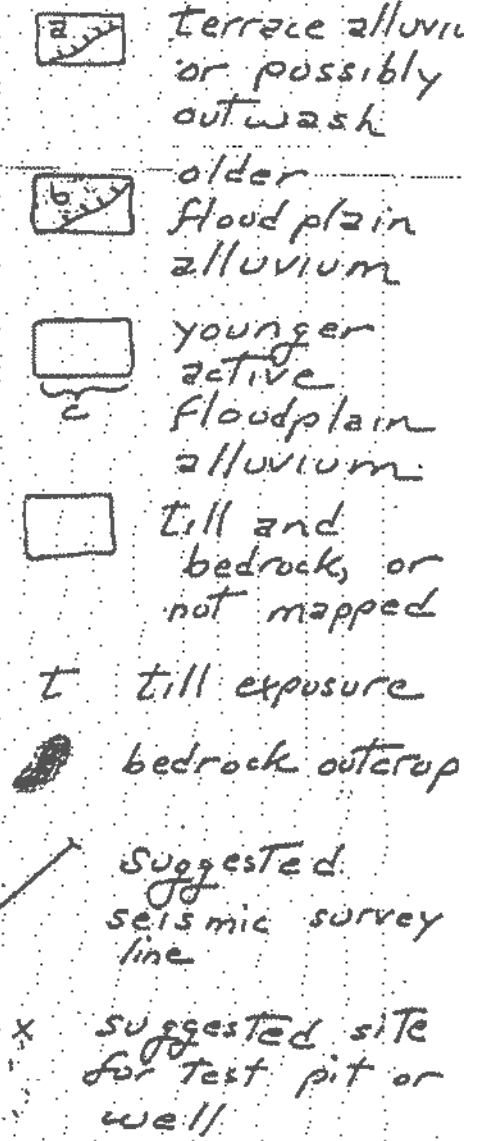 a terrace alluviu
or possibly
outwash
b older
flood plain
alluvium
younger
active
c floodplain
alluvium
till and
bedrock, or
not mapped
t till exposure
bedrock outcrop
suggested
seismic survey
line
x suggested site
for test pit or
well